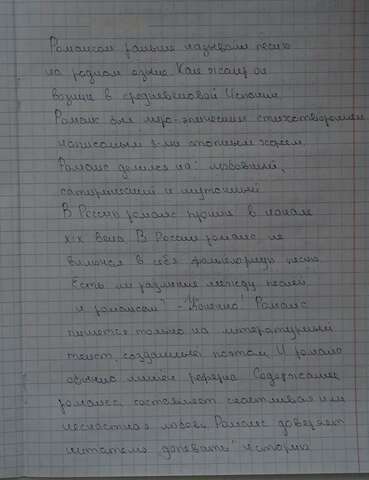 Романсом раньше называли песню
на родном языке. Как жанр он
возник в средневековой Испании
Романс был лиро-эпическим стихотворением
написанным 8-ми стопным хореем.
Романс делился на: любовный,
сатирический и шуточный
В Россию романс пришел в начале
XIX века. В России романс
в себя фольклорную песню.
Есть ли различие между песней
и романсом? - Конечно! Романс
пишется только на литературный
текст, созданный поэтом. И романс
обычно лишен рефрена Содержание
романса составляет счастливая или
несчастная любовь. Романс доверяет
читателю допевать историю